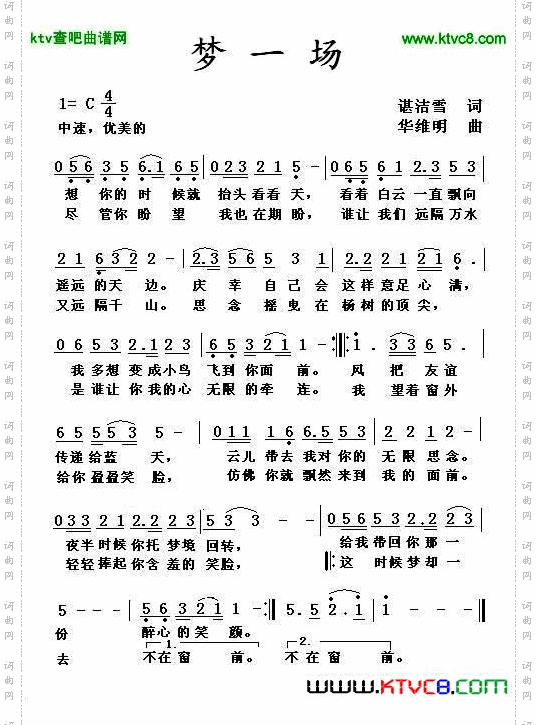 ktv查吧曲谱网
www.ktvc8.com
梦一场
1= C 4/4
谌洁雪 词
中速，优美的
华维明 曲
0 5 6 3 5 6. 1 6 5 | 0 2 3 2 1 5 - | 0 6 5 6 1 2 3 1 2
想 你的 时 候就 抬头 看看 天， 看着 白云 一直 飘向
尽 管你 盼 望 我也 在期 盼， 谁让 我们 远隔 万水
2 1 6 3 2 2 - | 2. 3 5 6 5 3 2 3 | 1. 2 2 2 1 2 1 6 .
遥远 的天 边。 庆 幸 自己 会 这样 意足 心 满，
又远 隔千 山。 思 念 摇曳 在 杨树 的顶 尖，
0 6 5 3 2. 1 2 3 | 6 5 3 2 1 1 - :‖: 1 . 7 6 5
我 多想 变成 小鸟 飞到 你面 前。 风 把 友谊
是谁让 你我的心 无限 的牵 连。 我 望着 窗外
6 5 5 5 3 5 - | 0 1 1 1 6 6. 5 5 3 | 5 1 3 2 2 -
传递 给蓝 天， 云儿 带去 我对 你的 无限 思念。
给你 盈盈 笑 脸， 仿佛 你就 飘然 来到 我的 面前。
0 3 3 2 1 2. 2 2 3 | 5 5 - - | 0 5 6 5 3 2. 2 2 3
夜半 时候 你托 梦境 回转， 给我 带回 你那 一
轻轻 捧起 你含 羞的 笑脸， ‖: 这 时候 梦却 一
5 - - - | 5 6 3 2 1 1 - :‖ 0 5. 5 2. 1 | 1 - - - ‖
份 醉心 的笑 颜。
1. 2.
去 不在 窗 前。 不在 窗 前。
www.KTVC8.com
词曲网